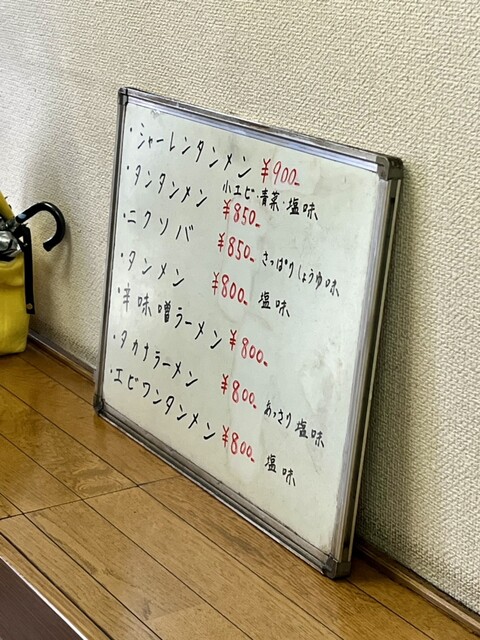 ・シャーレンタンメン ¥900-
小エビ・青菜・塩味
・タンタンメン ¥850-
・ニクソバ ¥850- さっぱりしょうゆ味
・タンメン ¥800- 塩味
・辛味噌ラーメン ¥800-
・タカナラーメン ¥800- あっさり塩味
・エビワンタンメン ¥800- 塩味